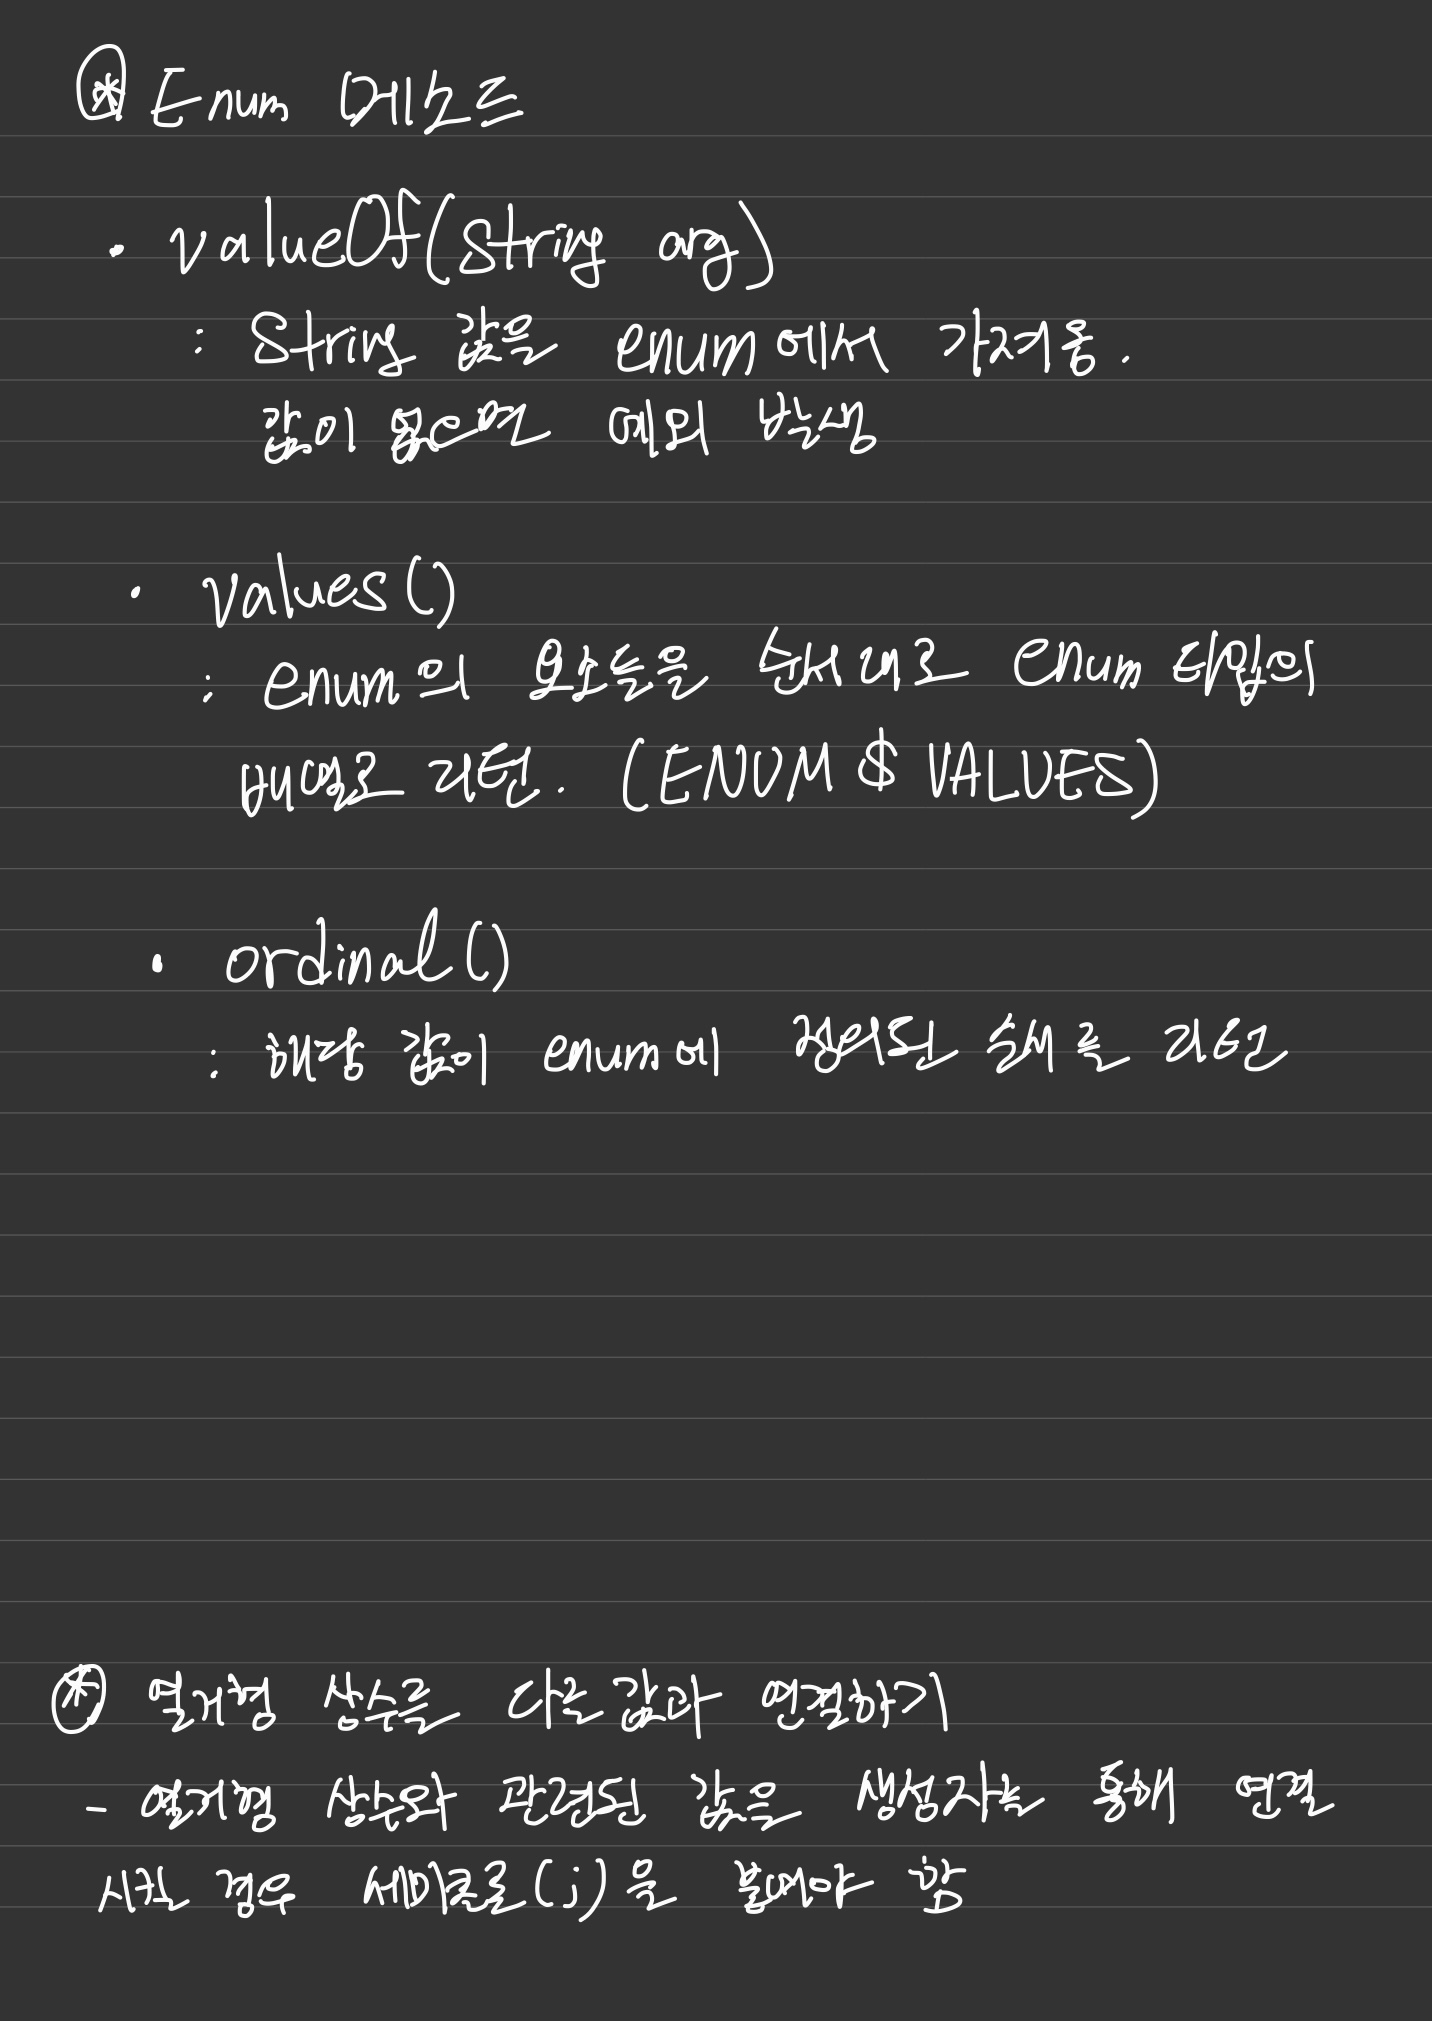 * Enum 메소드
· valueOf(String arg)
: String 값을 enum에서 가져옴.
값이 없으면 예외 발생
· values()
: enum의 요소들을 순서대로 enum 타입의
배열로 리턴. (ENUM $ VALUES)
· ordinal()
: 해당 값이 enum에 정의된 순서를 리턴
* 열거형 상수를 다른 값과 연결하기
- 열거형 상수와 관련된 값을 생성자를 통해 연결
시킬 경우 세미콜론(;)을 붙여야 함